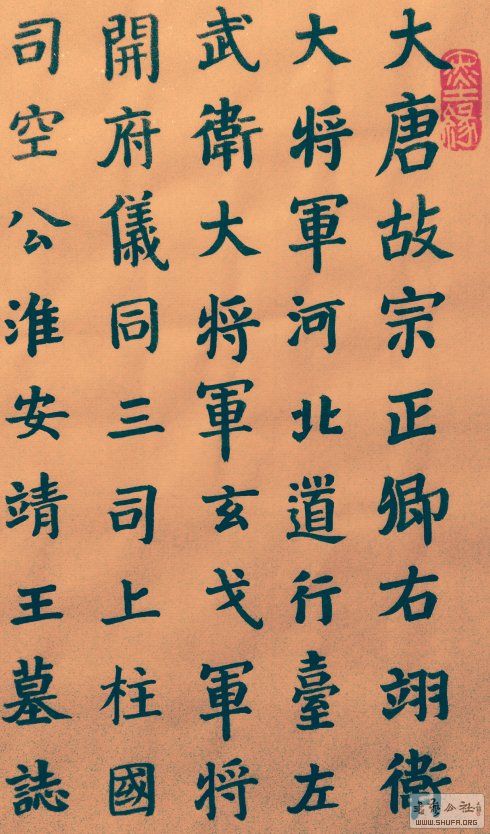 大唐故宗正卿右翊衛
大將軍河北道行臺左
武衛大將軍玄戈軍將
開府儀同三司上柱國
司空公淮安靖王墓誌
WWW.SHUFA.ORG